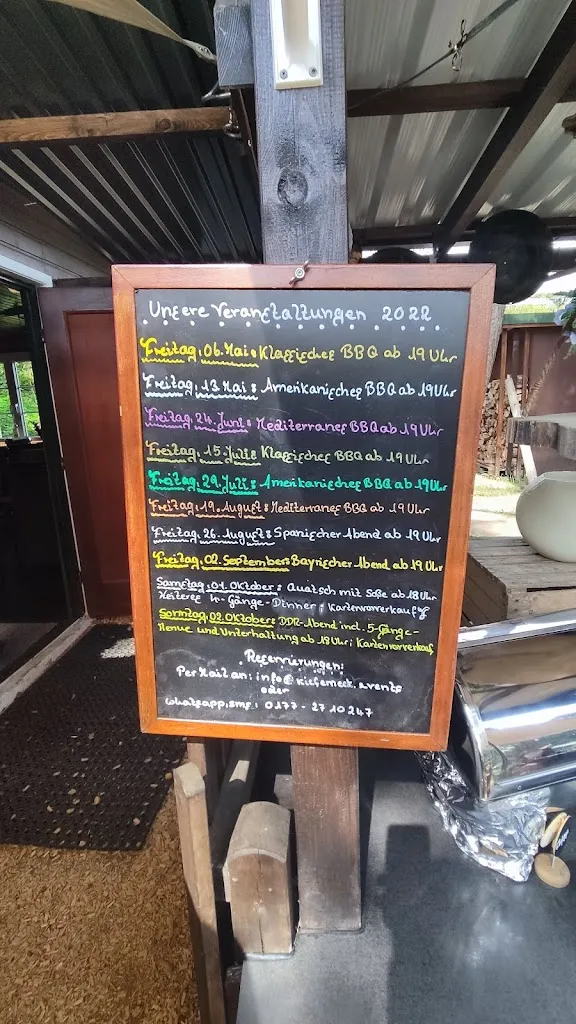 Unsere Veranstaltungen 2022
Freitag, 06. Mai: Klassisches BBQ ab 19 Uhr
Freitag, 13. Mai: Amerikanisches BBQ ab 19 Uhr
Freitag, 24. Juni: Mediterranes BBQ ab 19 Uhr
Freitag, 15. Juli: Klassisches BBQ ab 19 Uhr
Freitag, 29. Juli: Amerikanisches BBQ ab 19 Uhr
Freitag, 19. August: Mediterranes BBQ ab 19 Uhr
Freitag, 26. August: Spanischer Abend ab 19 Uhr
Freitag, 02. September: Bayrischer Abend ab 19 Uhr
Samstag, 01. Oktober: Quatsch mit Soße ab 18 Uhr
Heiteres 4-Gänge-Dinner; Kartenvorverkauf
Sonntag, 02. Oktober: DDR-Abend incl. 5-Gänge-
Menue und Unterhaltung ab 18 Uhr; Kartenvorverkauf
Reservierungen:
Per Mail an: info@kieferneck.events
oder
Whatsapp, sms: 0177-2710247